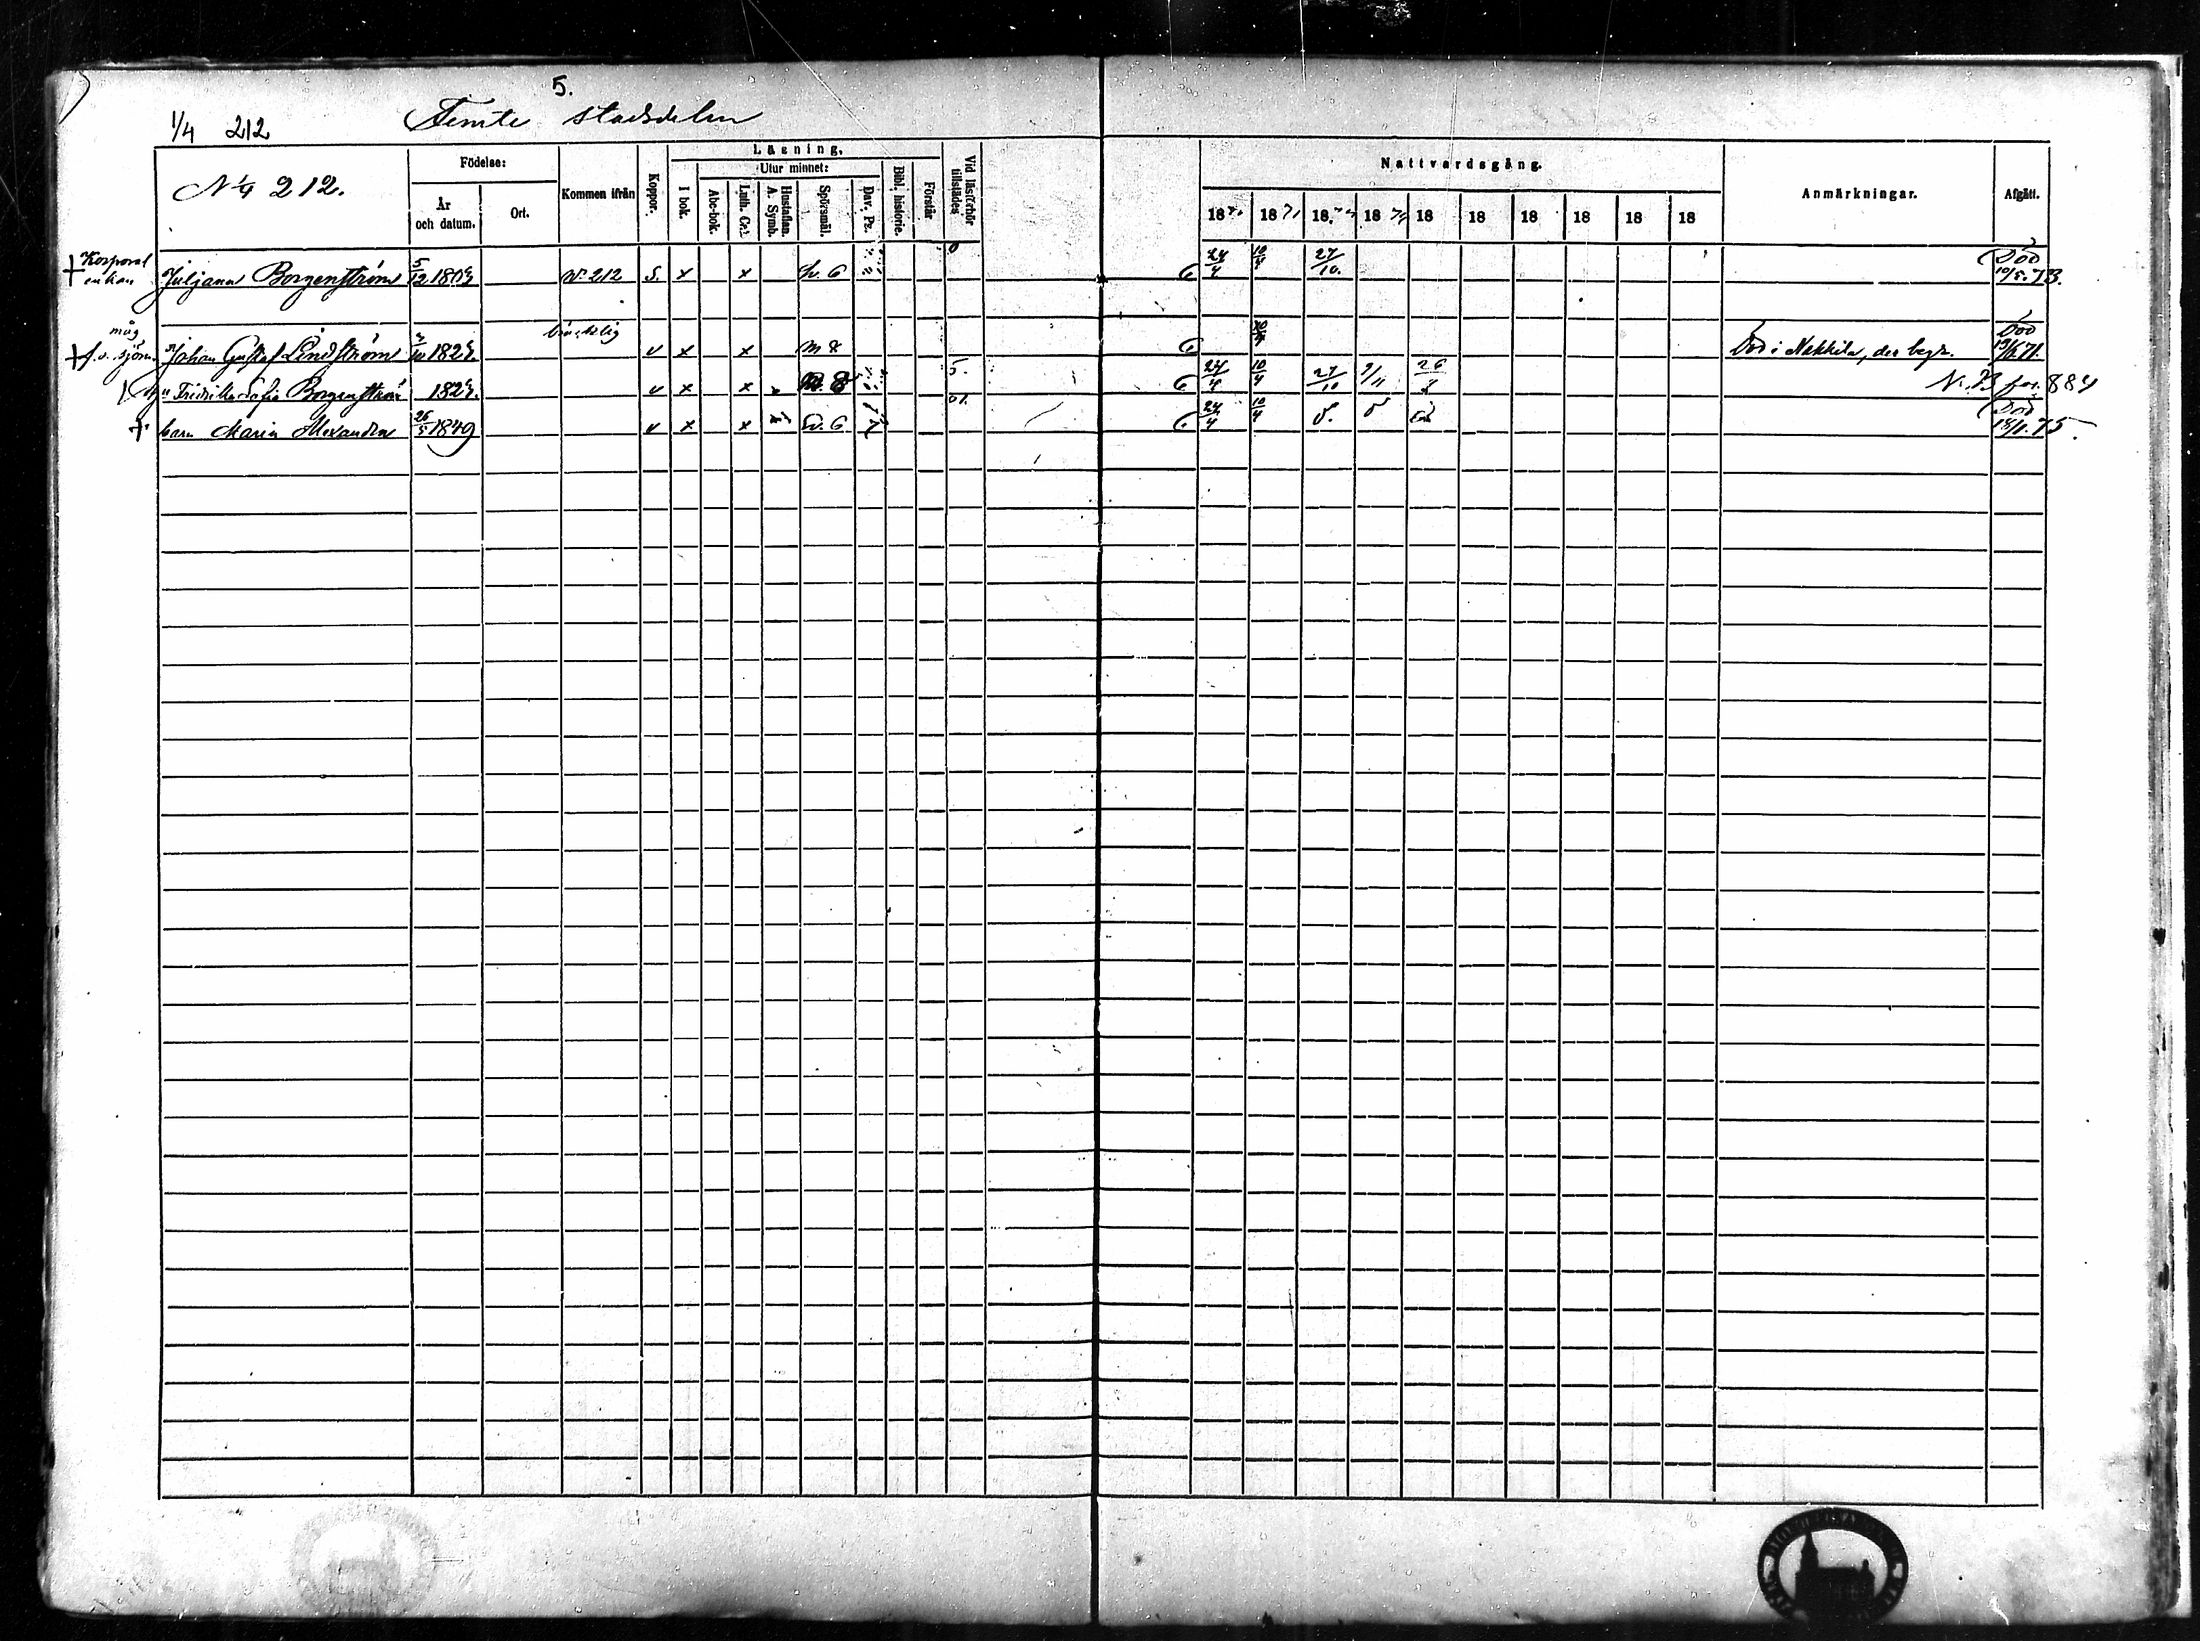 5.
1/4 212 Femte stadsdelen
N 1/4 212.
Födelse:
År och datum.
Ort.
Kommen ifrån
Koppor.
Läsning.
I bok.
Utur minnet:
Abc-bok.
Luth. Cat.
Hustaflan. A. Symb.
Spörsmål.
Dav. Ps.
Bibl. historie.
Förstår
Vid läsförhör tillstädes
Nattvardsgång.
18 18 71 18 18 18 18 18 18 18 18
Anmärkningar.
Afgått.
Korporal enkan Juljana Borgenström 5/12 180 N:o 212 S. x x Sv. 6 6 24/4 10/4 27/10. Död 10/5.73.
måg f.d. sjöm. Johan Gustaf Lindström 182 v x x 6 Död i Nakkila, der begr. Död 71.
Fredrika Sofia Borgenström 182 v x x 5. 6 24/4 10/4 27/10 9/11 884
barn Maria Alexandra 26/5 1849 v x x Sv. 6 6 24/4 10/4 Död 75.